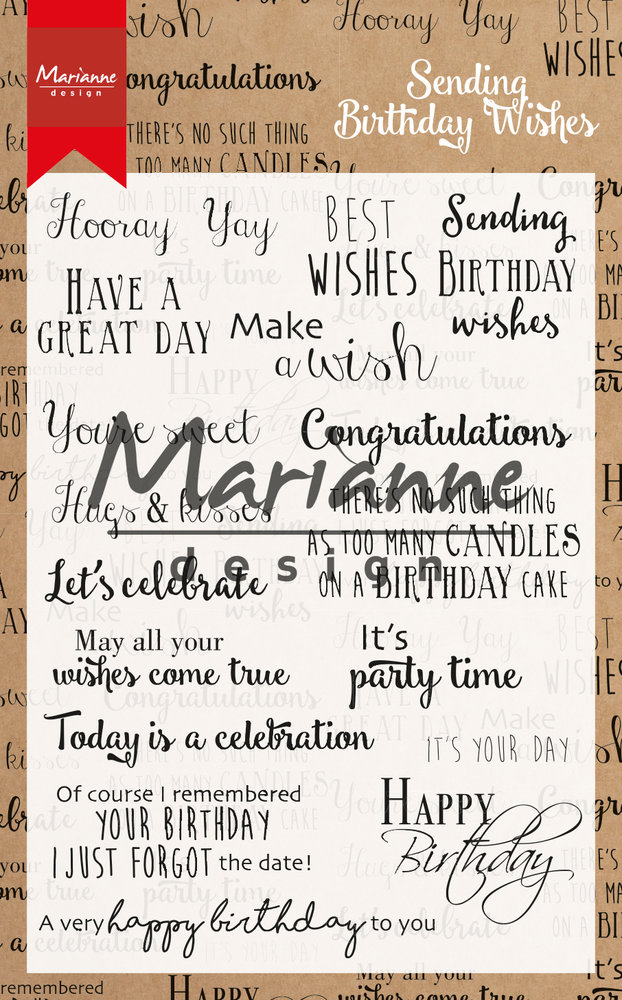 Marianne
design
Sending
Birthday Wishes
Hooray Yay
BEST
WISHES
Sending
BIRTHDAY
wishes
HAVE A
GREAT DAY
Make
a wish
You're sweet
Congratulations
Marianne
design
Hugs & kisses
THERE'S NO SUCH THING
AS TOO MANY CANDLES
ON A BIRTHDAY CAKE
Let's celebrate
May all your
wishes come true
It's
party time
Today is a celebration
IT'S YOUR DAY
Of course I remembered
YOUR BIRTHDAY
I JUST FORGOT the date!
HAPPY
Birthday
A very happy birthday to you